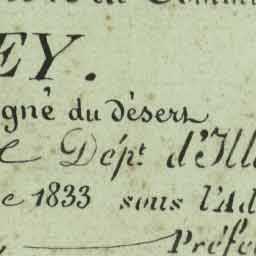 EY.
gné du désert
e Dépt d'Ill
e 1833 sous l'Ad
Préfe